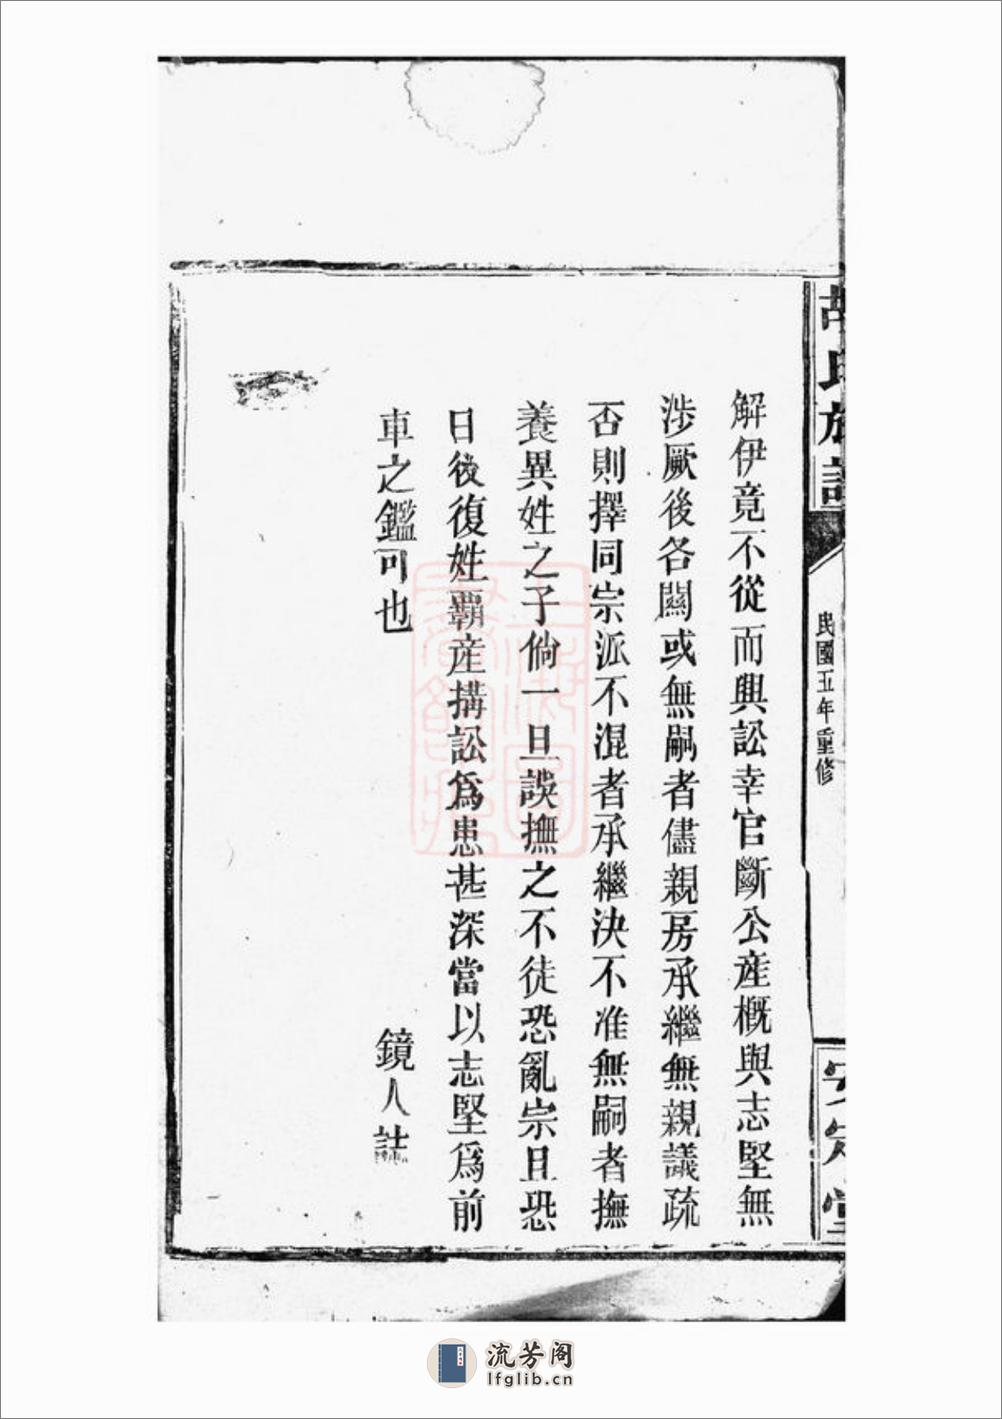 胡氏族譜
民國五年重修
安定堂
解伊竟不從而興訟幸官斷公産概與志堅無
涉厥後各闊或無嗣者儘親房承繼無親議疏
否則擇同宗派不混者承繼決不准無嗣者撫
養異姓之子倘一旦誤撫之不徒恐亂宗且恐
日後復姓霸産搆訟爲患甚深當以志堅爲前
車之鑑可也
鏡人誌
流芳阁
lfglib.cn